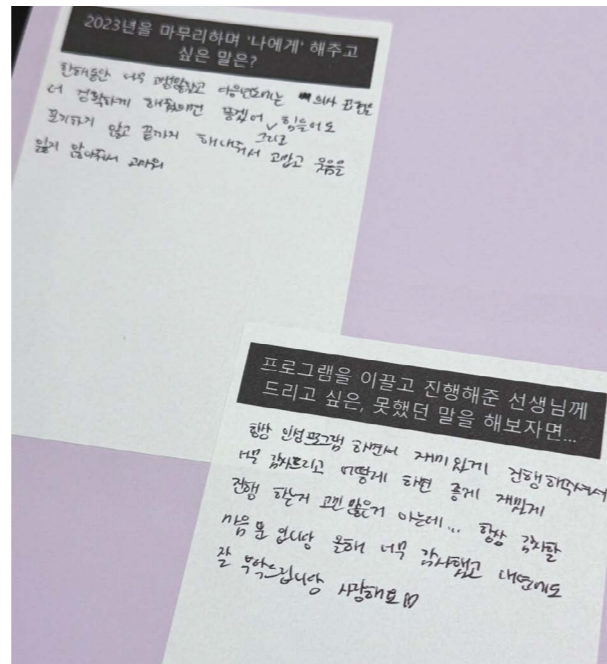 2023년을 마무리하며 '나에게' 해주고
싶은 말은?
한해동안 너무 고생많았고 다음년도에는 의사 표현을
더 정확하게 해줬으면 좋겠어 힘들어도
포기하지 않고 끝까지 해내줘서 고맙고 웃음을
그리고
잃지 않아줘서 고마워
프로그램을 이끌고 진행해준 선생님께
드리고 싶은, 못했던 말을 해보자면...
항상 인성프로그램 하면서 재미있게 진행해주셔서
너무 감사드리고 어떻게 하면 좋게 재밌게
진행 하는지 고민 많은거 아는데... 항상 감사할
마음 뿐 입니당 올해 너무 감사했고 내년에도
잘 부탁드립니당 사랑해요